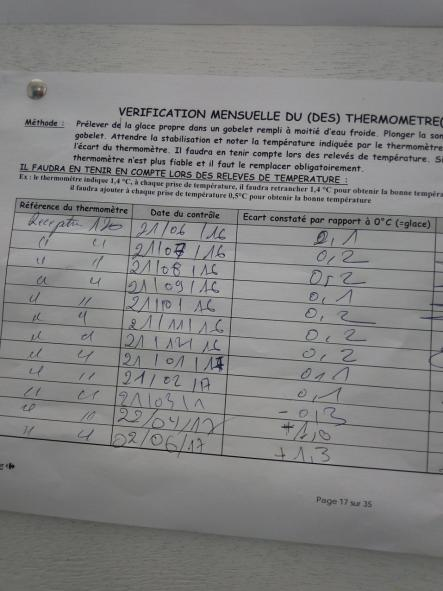 VERIFICATION MENSUELLE DU (DES) THERMOMETRE(
Méthode : Prélever de la glace propre dans un gobelet rempli à moitié d'eau froide. Plonger la son
gobelet. Attendre la stabilisation et noter la température indiquée par le thermomètre
l'écart du thermomètre. Il faudra en tenir compte lors des relevés de température. Si
thermomètre n'est plus fiable et il faut le remplacer obligatoirement.
IL FAUDRA EN TENIR EN COMPTE LORS DES RELEVES DE TEMPERATURE :
Ex : le thermomètre indique 1,4 °C, à chaque prise de température, il faudra retrancher 1,4 °C pour obtenir la bonne tempéra
il faudra ajouter à chaque prise de température 0,5°C pour obtenir la bonne température
Référence du thermomètre Date du contrôle Ecart constaté par rapport à 0°C (=glace)
120 21/06/16 0,1
" " 21/07/16 0,2
" " 21/08/16 0,2
" " 21/09/16 0,1
" " 21/10/16 0,2
" " 21/11/16 0,2
" " 21/12/16 0,2
" " 21/01/17 0,1
" " 21/02/17 0,1
" " 21/03/1 -0,3
" " 22/04/17 +1,0
" " 02/06/17 +1,3
Page 17 sur 35